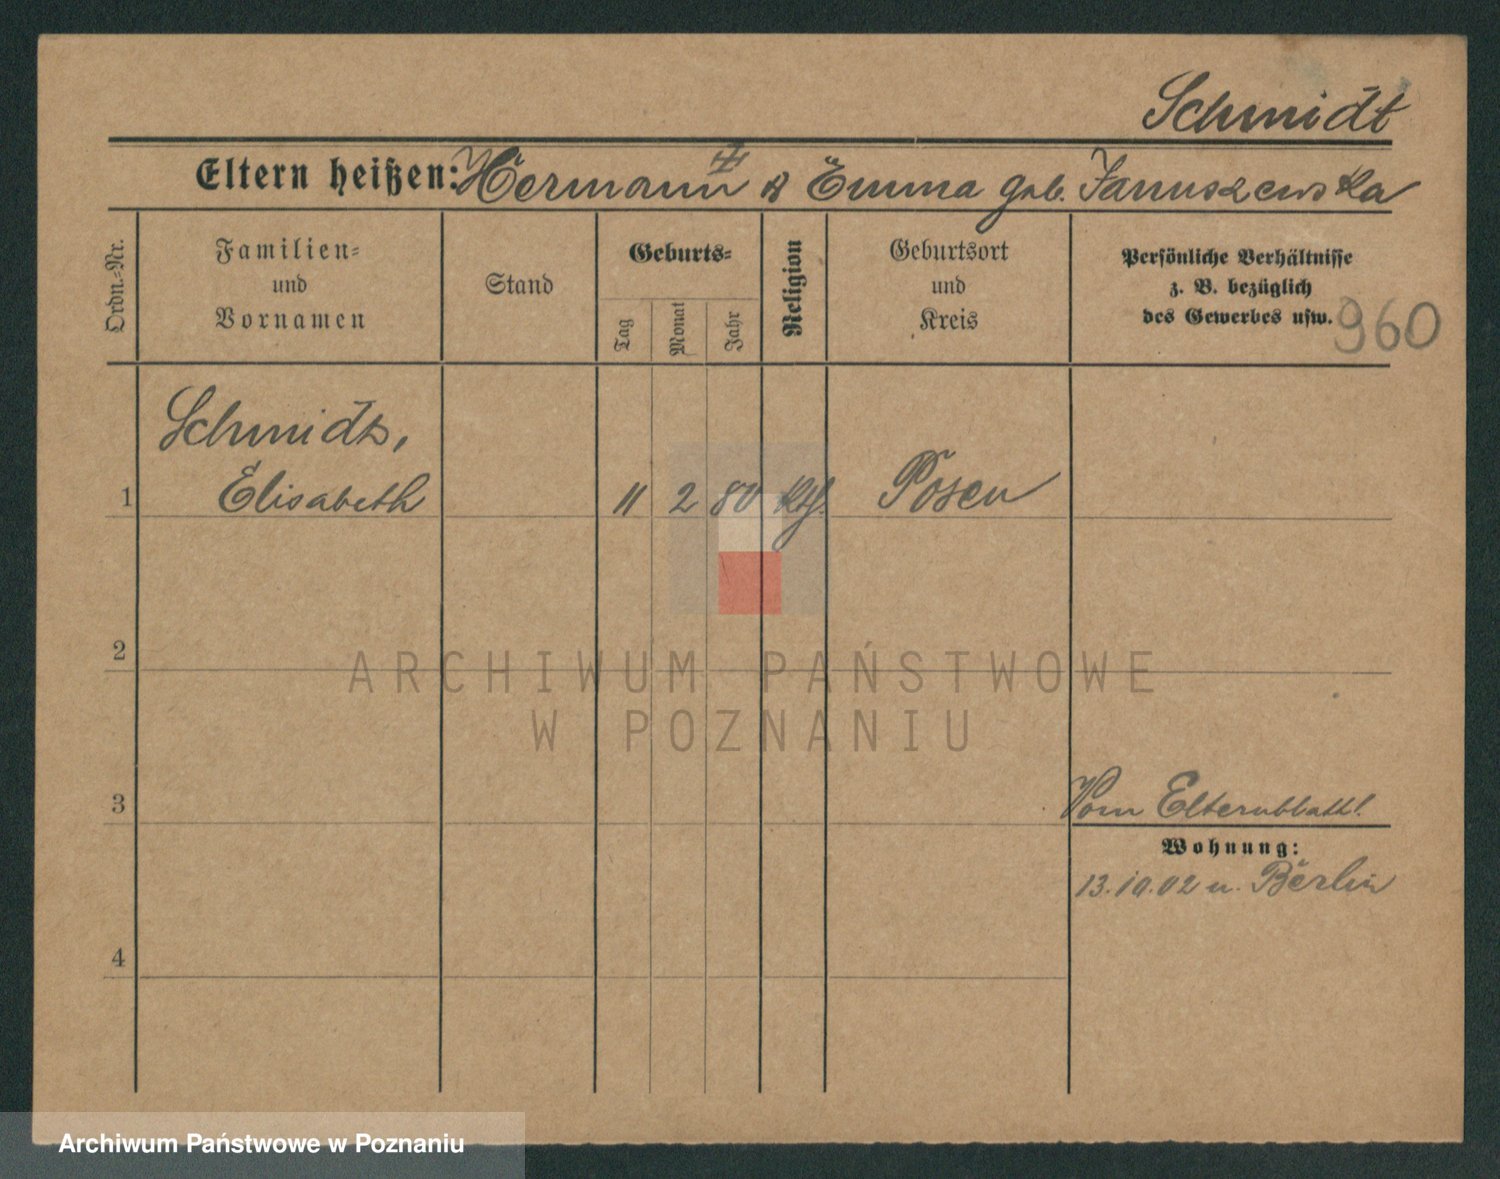 Schmidt
Eltern heißen: Hermann ‡ & Emma geb. Januszewska
Ordn.-Nr.
Familien-
und
Vornamen
Stand
Geburts-
Tag
Monat
Jahr
Religion
Geburtsort
und
Kreis
Persönliche Verhältnisse
z. B. bezüglich
des Gewerbes usw.
960
Schmidt,
1 Elisabeth 11 2 80 kth. Posen
2
ARCHIWUM PAŃSTWOWE
W POZNANIU
3
Vom Elternblatt!
Wohnung:
13.10.02 n. Berlin
4
Archiwum Państwowe w Poznaniu